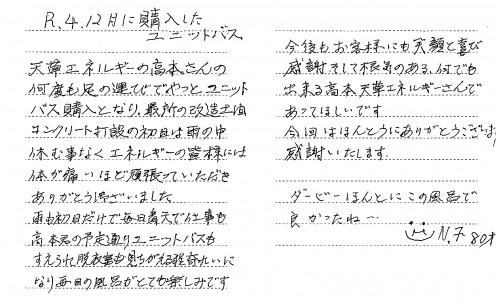 R.4.12月に購入した
ユニットバス
天草エネルギーの高本さんの
何度も足の運びでやっとユニット
バス購入となり、最所の改造土間
コンクリート打設の初日は雨の中
休む事なくエネルギーの皆様には
体が痛いほど頑張っていただき
ありがとうございました
雨も初日だけで毎日晴天で仕事も
高本君の予定通りユニットバスも
すえられ脱衣室も見ちがえる程きれいに
なり毎日の風呂がとても楽しみです
今後もお客様にも笑顔と喜び
感謝そして根気のある、何でも
出来る高本天草エネルギーさんで
あってほしいです
今回はほんとうにありがとうございます
感謝いたします.
ダービーほんとにこの風呂で
良かったね〜
N.F 80才